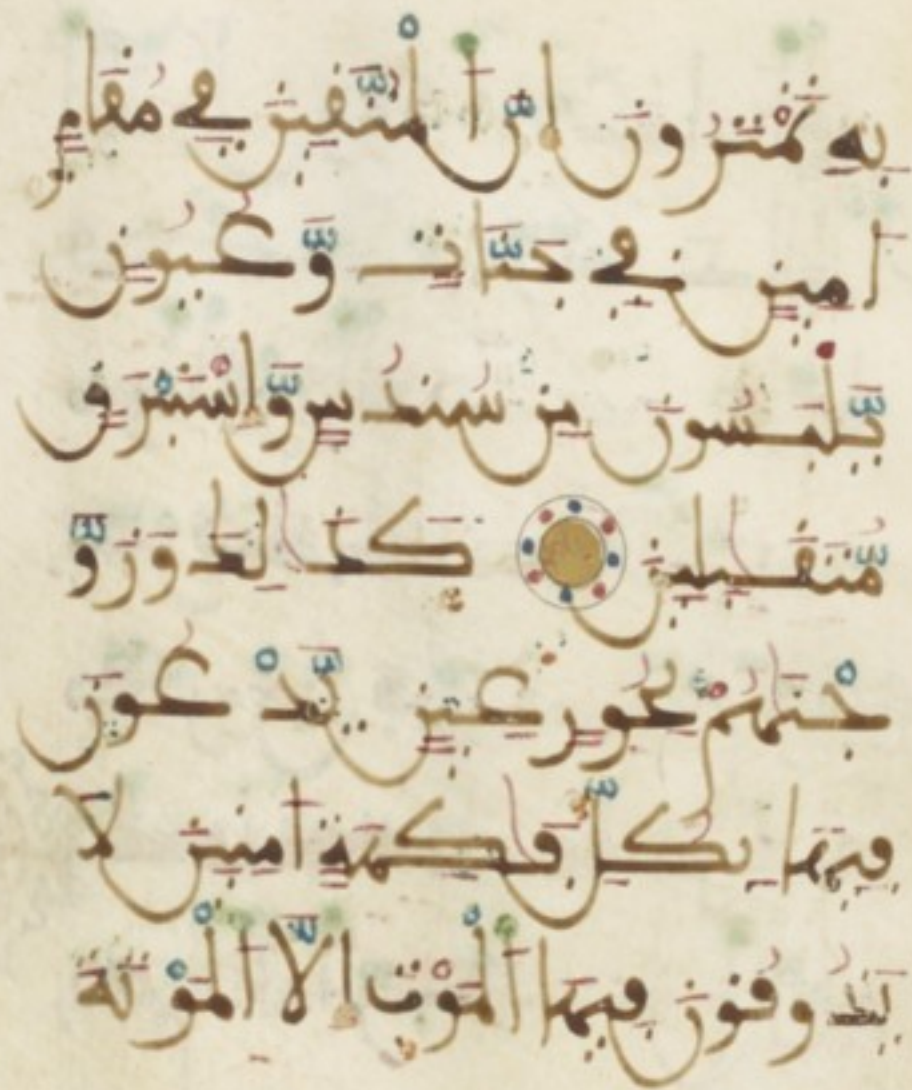 به تمترون إن المتقين في مقام
امين في جنات وعيون
يلبسون من سندس وإستبرق
متقبلين كذلك وزو
جنهم بحور عين يدعون
فيها بكل فكهة امنين لا
يذوقون فيها الموت إلا الموتة